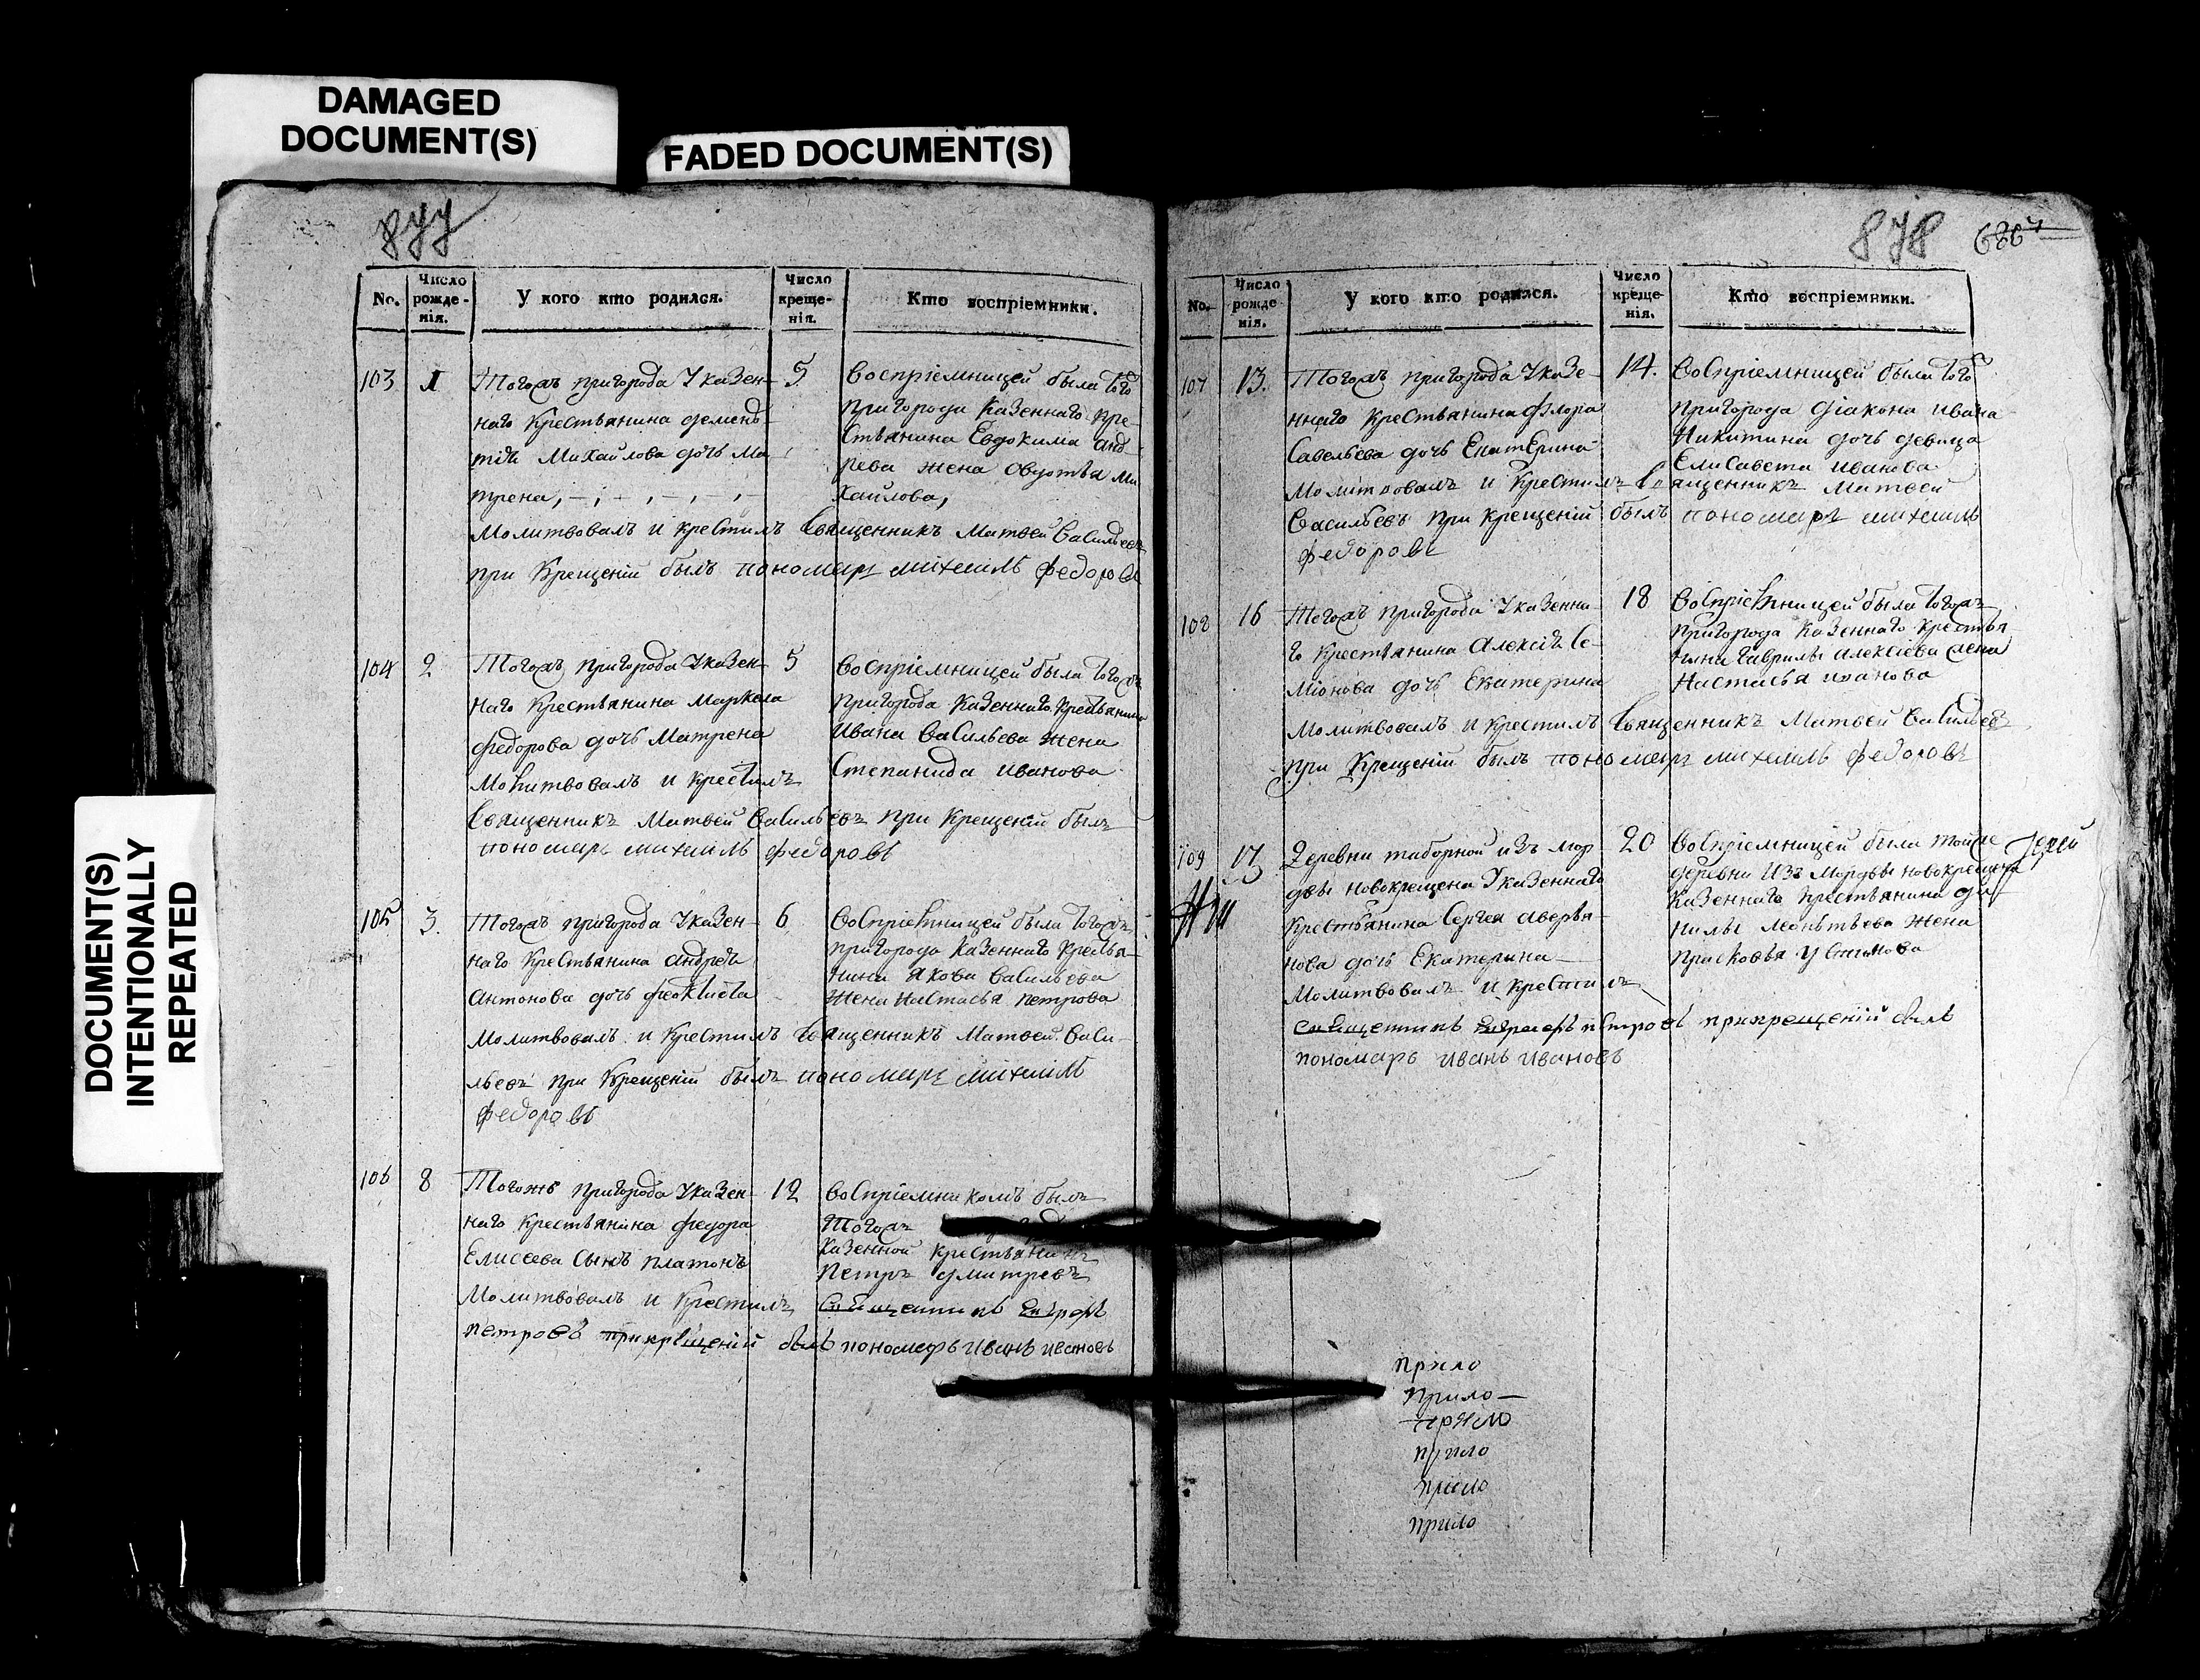 DAMAGED
DOCUMENT(S)
FADED DOCUMENT(S)
DOCUMENT(S)
INTENTIONALLY
REPEATED
877
No.
Число
рожде-
нія.
У кого кто родился.
Число
креще-
нія.
Кто воспріемники.
103
1
Тогожъ пригорода Указен-
наго Крестьянина демен
тія Михайлова дочь Ма
трена,
5
Воспріемницей была того
пригорода Казеннаго кре-
стьянина Евдокима анд
реева жена Ми
хайлова,
Молитвовалъ и крестилъ Священникъ Матвей Васильевъ
при Крещеніи былъ пономарь михаилъ федоровъ
104
2
Тогожъ пригорода Указен-
наго Крестьянина Маркела
федорова дочь Матрена
5
Воспріемницей была тогожъ
пригорода Казеннаго Крестьянина
Ивана Васильева жена
Степанида иванова
Молитвовалъ и крестилъ
Священникъ Матвей Васильевъ при Крещеніи былъ
пономарь михаилъ федоровъ
105
3.
Тогожъ пригорода Указен-
наго Крестьянина андрея
антонова дочь феоктиста
6
Воспріемницей была тогожъ
пригорода Казеннаго Крестья-
нина якова Васильева
жена настасья петрова
Молитвовалъ и Крестилъ Священникъ Матвей Васи-
льевъ при Крещеніи былъ пономарь михаилъ
федоровъ
106
8
Тогожъ пригорода Указен-
наго Крестьянина федора
Елисеева сынъ платонъ
12
Воспріемникомъ былъ
Тогожъ
Казенной крестьянинъ
Петръ дмитревъ
Молитвовалъ и крестилъ Священникъ
петровъ при крещеній былъ пономарь иванъ ивановъ
878
No.
Число
рожде-
нія.
У кого кто родился.
Число
креще-
нія.
Кто воспріемники.
107
13.
Тогожъ пригорода Указе-
ннаго крестьянина флора
Савельева дочь Екатерина
14.
Воспріемницей была того
пригорода діакона ивана
Никитина дочь девица
Елисавета иванова
Молитвовалъ и Крестилъ Священникъ Матвей
Васильевъ при крещеній былъ пономарь михаилъ
федоровъ
108
16
Тогожъ пригорода Указенна-
го Крестьянина Алексія Се-
міонова дочь Екатерина
18
Воспріемницей была тогожъ
пригорода Казеннаго крестья
нина гаврилы алексіева жена
Настасья иванова
Молитвовалъ и крестилъ Священникъ Матвей Васильевъ
при Крещеній былъ пономарь михаилъ федоровъ
109
17
Деревни таборной изъ мор
двы новокрещена Указеннаго
крестьянина Сергея аверья-
нова дочь Екатерина
20
Воспріемницей была тойже
деревни Изъ Мордвы новокрещена
Казеннаго крестьянина да
нилы жена
прасковья устинова
Молитвовалъ и крестилъ
священникъ петровъ прикрещеній былъ
пономарь иванъ ивановъ
прило
прило
прило
прило
прило